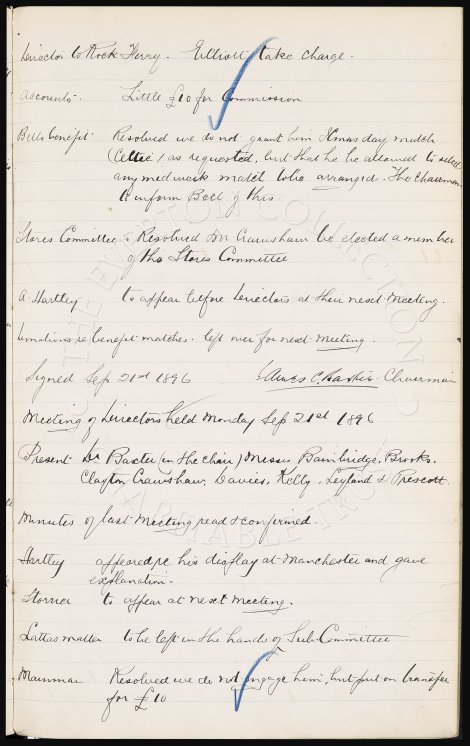 Director to Rock Ferry. Elliott take charge.
Accounts. Little £10 for Commission
Bells benefit. Resolved we do not grant him Xmas day match
(Celtic) as requested, but that he be allowed to select
any midweek match to be arranged. The Chairman
to inform Bell of this
Stores Committee. Resolved Mr Crawshaw be elected a member
of the Stores Committee
A. Hartley to appear before Directors at their next Meeting.
Donations re benefit matches. left over for next Meeting.
Signed Sep 21st 1896 James C. Baxter Chairman
Meeting of Directors held Monday Sep 21st 1896
Present Dr Baxter (in the chair) Messrs Bainbridge, Brooks.
Clayton Crawshaw. Davies, Kelly. Leyland & Prescott.
Minutes of last Meeting read & confirmed.
Hartley appeared re his display at Manchester and gave
explanation.
Storrier to appear at next Meeting.
Lattas matter to be left in the hands of Sub Committee
Resolved we do not engage him, but put on transfer
for £10
THE EVERTON COLLECTION CHARITABLE TRUST